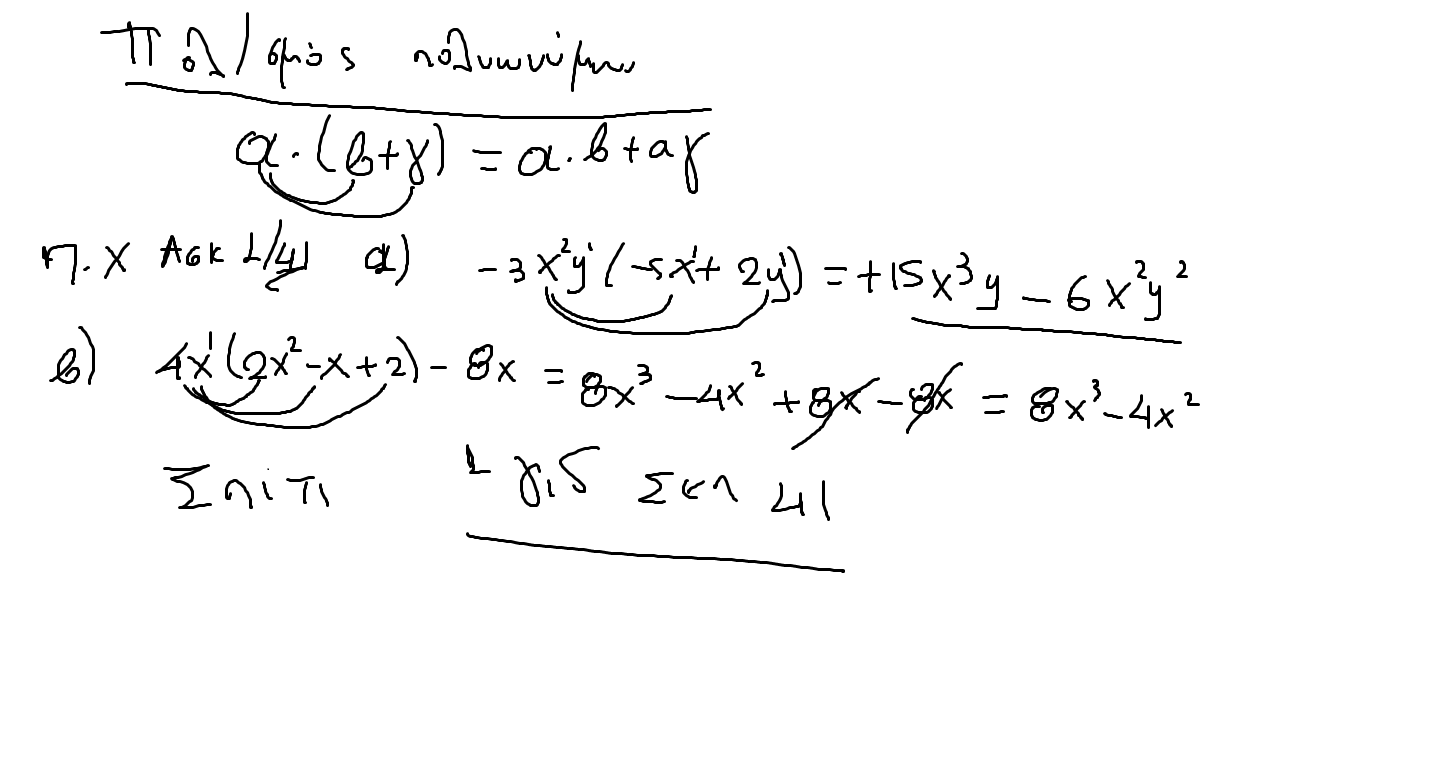 Πολ/σμός πολυωνύμων
α·(β+γ) = α·β+αγ
π.χ Ασκ 1/41 α) -3x²y¹(-5x¹+2y¹) = +15x³y - 6x²y²
β) 4x¹(2x²-x+2) - 8x = 8x³ - 4x² + 8x - 8x = 8x³ - 4x²
Σπίτι 1 γ,δ Σελ 41